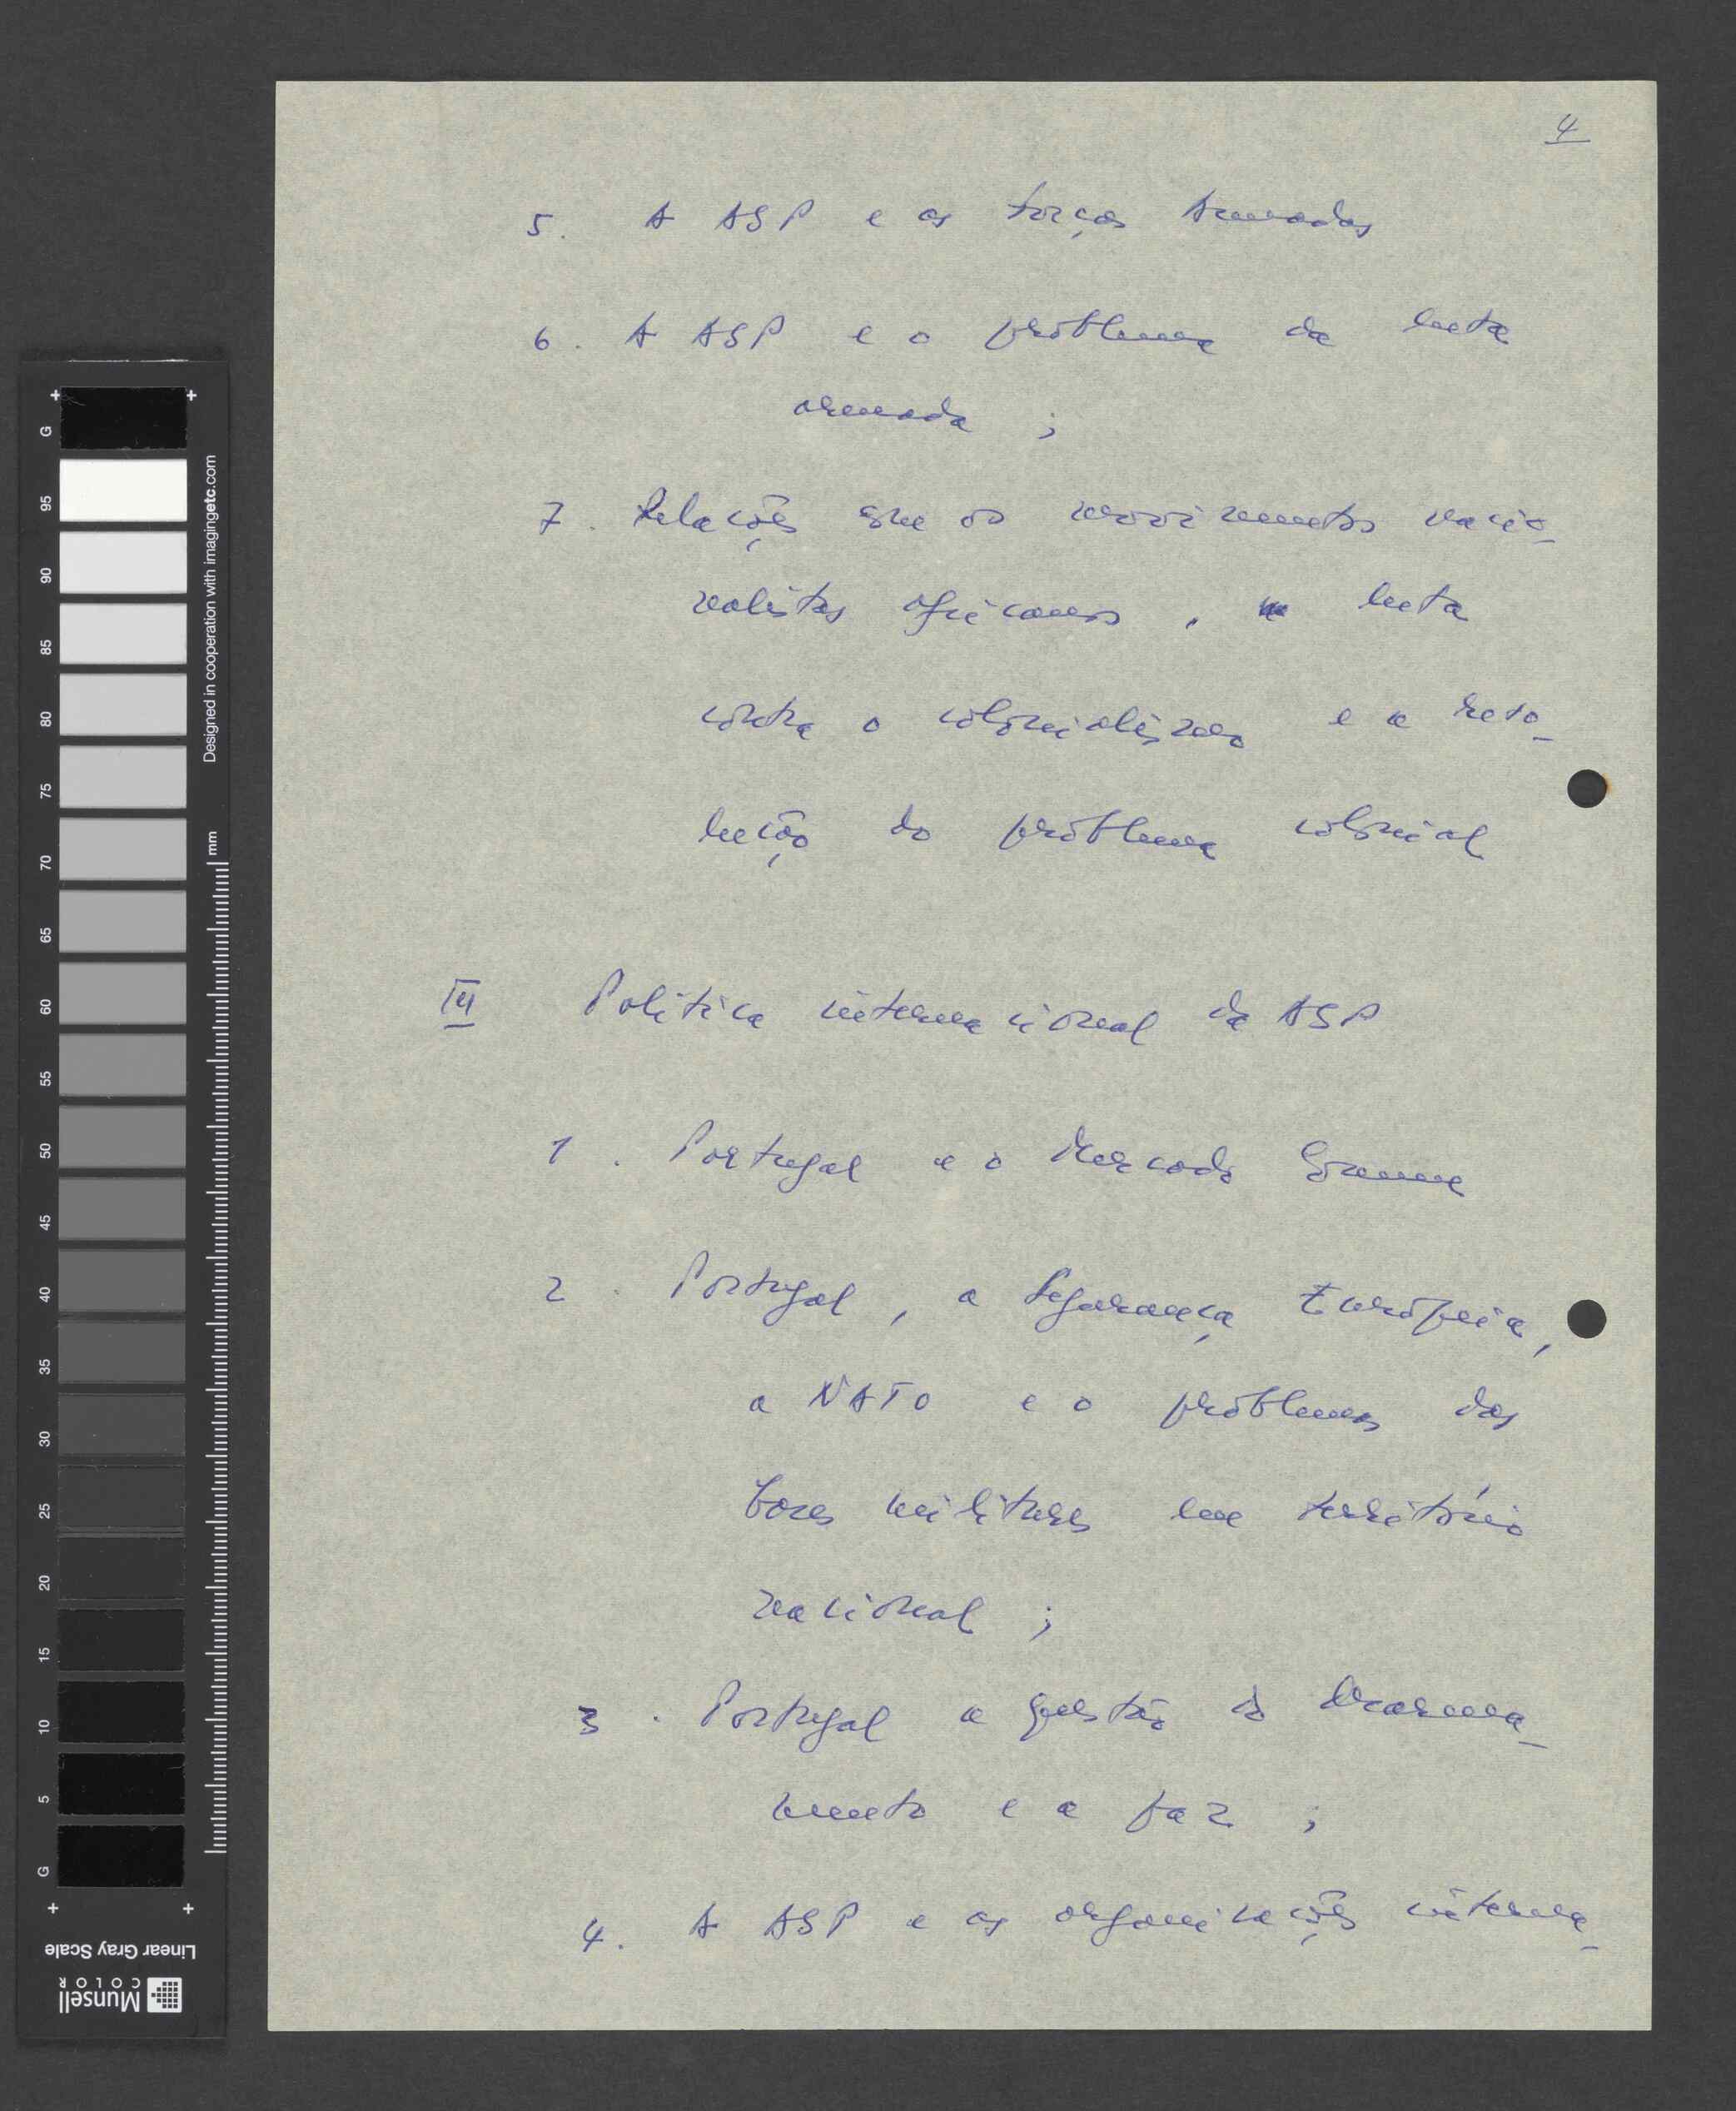 4
5. A ASP e as Forças Armadas
6. A ASP e o problema da luta
armada ;
7. Relações com os movimentos nacio-
nalistas africanos, luta
contra o colonialismo e a reso-
lução do problema colonial
III Politica internacional da ASP
1. Portugal e o Mercado Comum
2. Portugal, a Segurança Europeia,
a NATO e o problema das
bases militares em território
nacional ;
3. Portugal a questão do Desarma-
mento e a paz ;
4. A ASP e as organizações interna-
G 95 90 85 80 75 70 65 60 55 50 45 40 35 30 25 20 15 10 5 G
Designed in cooperation with imagingetc.com
mm
Linear Gray Scale
Munsell
COLOR